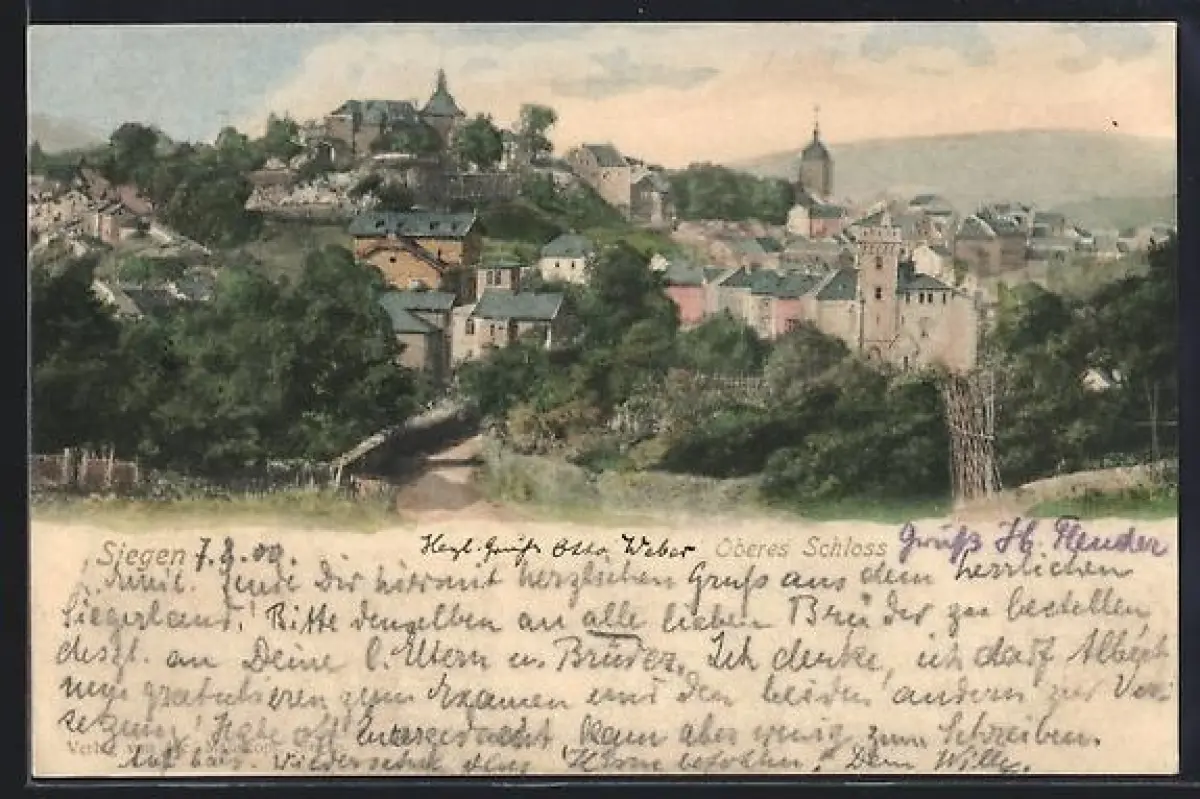 Siegen 7.8.09. Herzl. Gruß Otto Weber Oberes Schloss Gruß H. Flender
Sende Dir hiermit herzlichen Gruß aus dem herrlichen
Siegerland! Bitte denselben an alle lieben Brüder zu bestellen
deszl. an Deine l. Eltern u. Brüder. Ich denke, ich darf Albert
gratulieren zum Examen und den beiden andern zur Ver-
setzung! Habe oft Euer gedacht, kam aber wenig zum Schreiben.
Verlag von
Auf bald. Wiedersehn dem Herrn befohlen! Dein Willy.